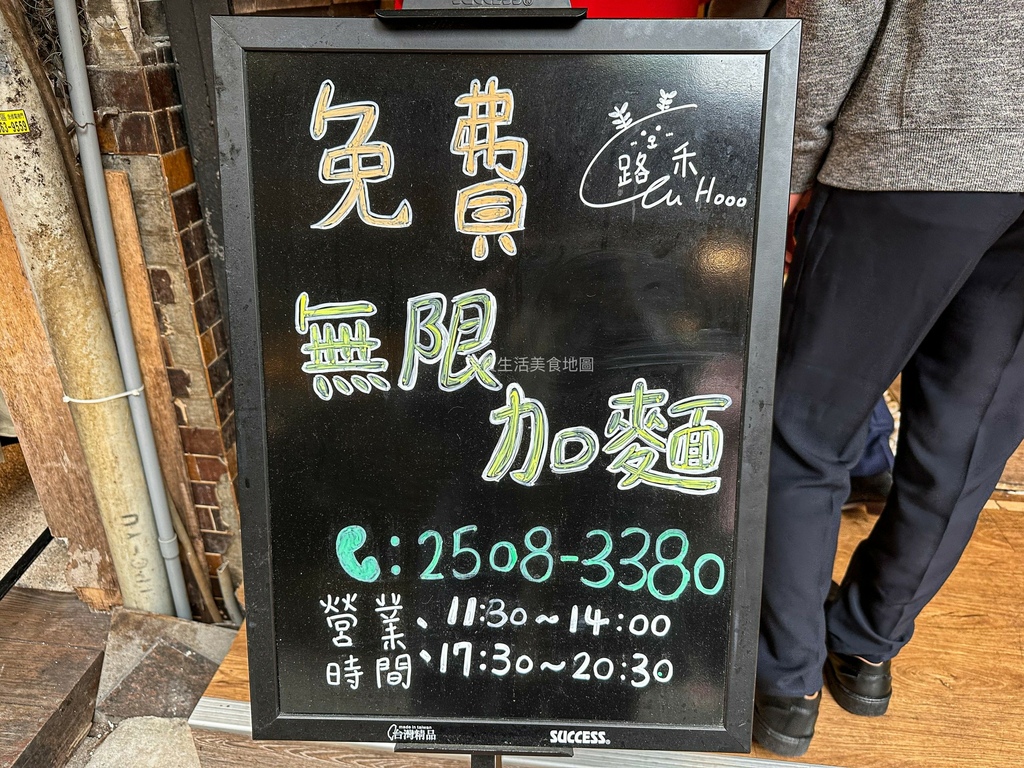 SUCCESS®
免費
路禾
Lu Hooo
無限
生活美食地圖
加麵
:2508-3380
營業時間、11:30~14:00
、17:30~20:30
made in taiwan
台灣精品
SUCCESS®
53-9559